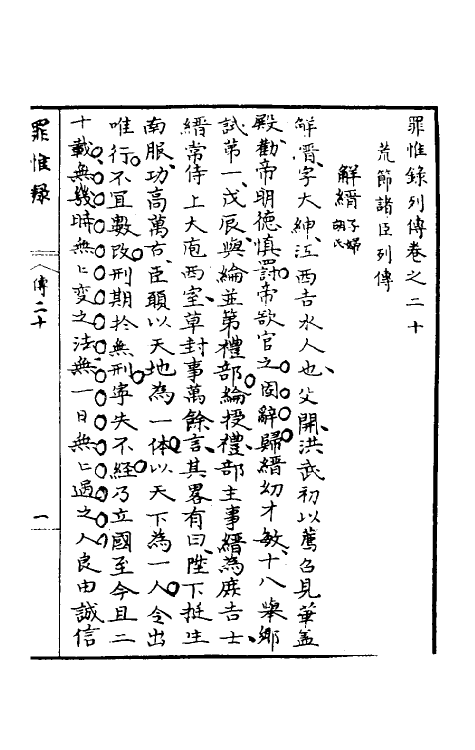 罪惟錄列傳卷之二十
荒節諸臣列傳
解縉 子婦胡氏
解縉、字大紳、江西吉水人也、父開、洪武初以薦召見華蓋
殿、勸帝明德慎罰、帝欲官之、固辭歸、縉幼才敏、十八舉鄉
試第一、戊辰、與綸並第禮部、綸授禮部主事、縉為庶吉士、
縉常侍上大庖西室、草封事萬餘言、其畧有曰、陛下挺生
南服、功高萬古、臣願以天地為一体、以天下為一人、令出
唯行、不宜數改、刑期於無刑、寧失不経、乃立國至今且二
十載、無幾時無亡变之法、無一日無亡過之人、良由誠信
罪惟錄
傳二十
一